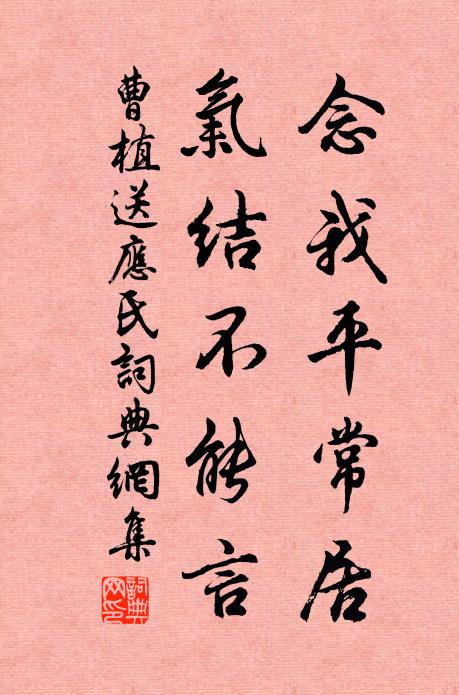 念我平常居
氣結不能言
曹植送應氏詞典網集
詞典網印